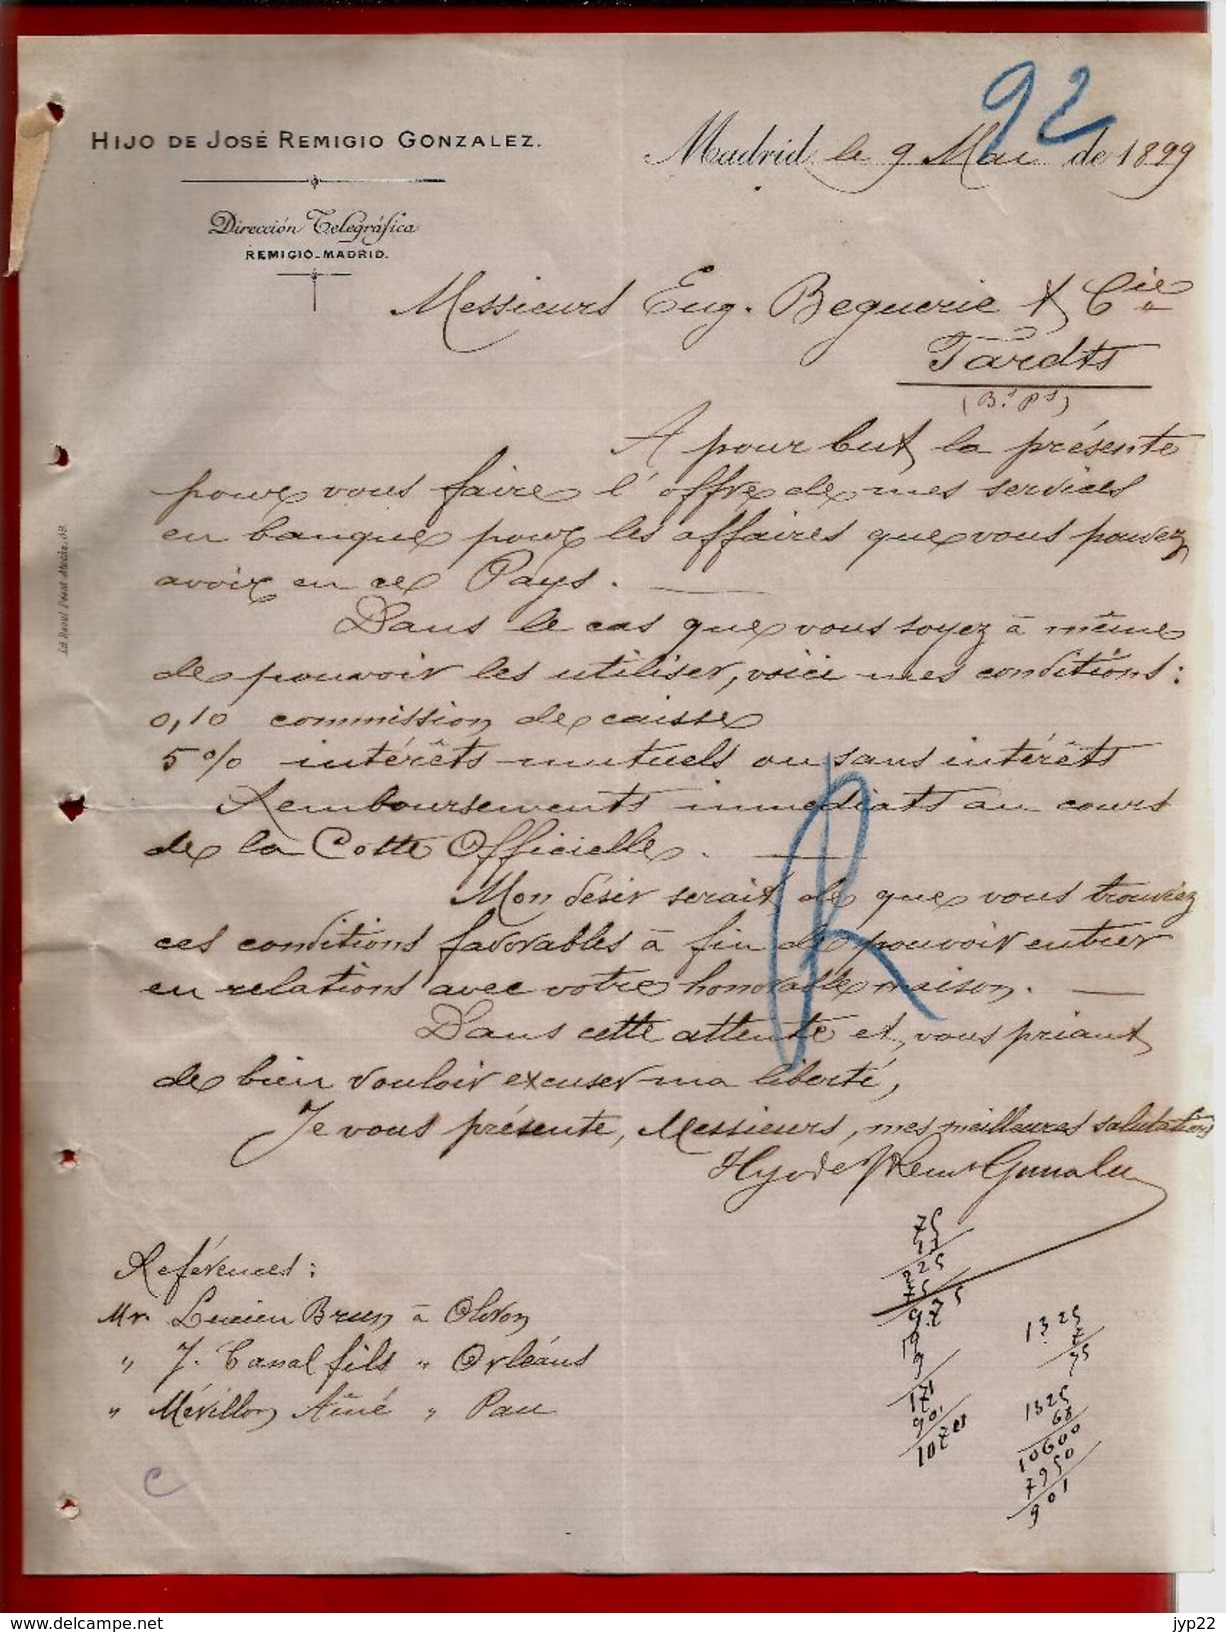 92
HIJO DE JOSÉ REMIGIO GONZALEZ.
Madrid le 9 Mai de 1899
Dirección Telegráfica
REMIGIO-MADRID.
Messieurs Eug. Beguerie & Cie
Tardts
(Bs Ps)
A pour but la présente
pour vous faire l'offre de mes services
en banque pour les affaires que vous pouvez
avoir en ce Pays.
Dans le cas que vous soyez à même
de pouvoir les utiliser, voici mes conditions:
0,10 commission de caisse
5% intérêts mutuels ou sans intérêts
Remboursements immediats au cours
de la Cotte Officielle.
Mon désir serait de que vous trouviez
ces conditions favorables à fin de pouvoir entrer
en relations avec votre honorable maison.
Dans cette attente et, vous priant
de bien vouloir excuser ma liberté,
Je vous présente, Messieurs, mes meilleures salutations
Hijo de J Rem Gonzalez
Références:
Mr. Lucien Brun à Oloron
" J. Canal fils " Orléans
" Mévillon Aîné " Pau
75
13
225
75
9.75
19
9
171
901
1325
7
75
1325
68
10600
7950
901
C
delcampe.net
jyp22